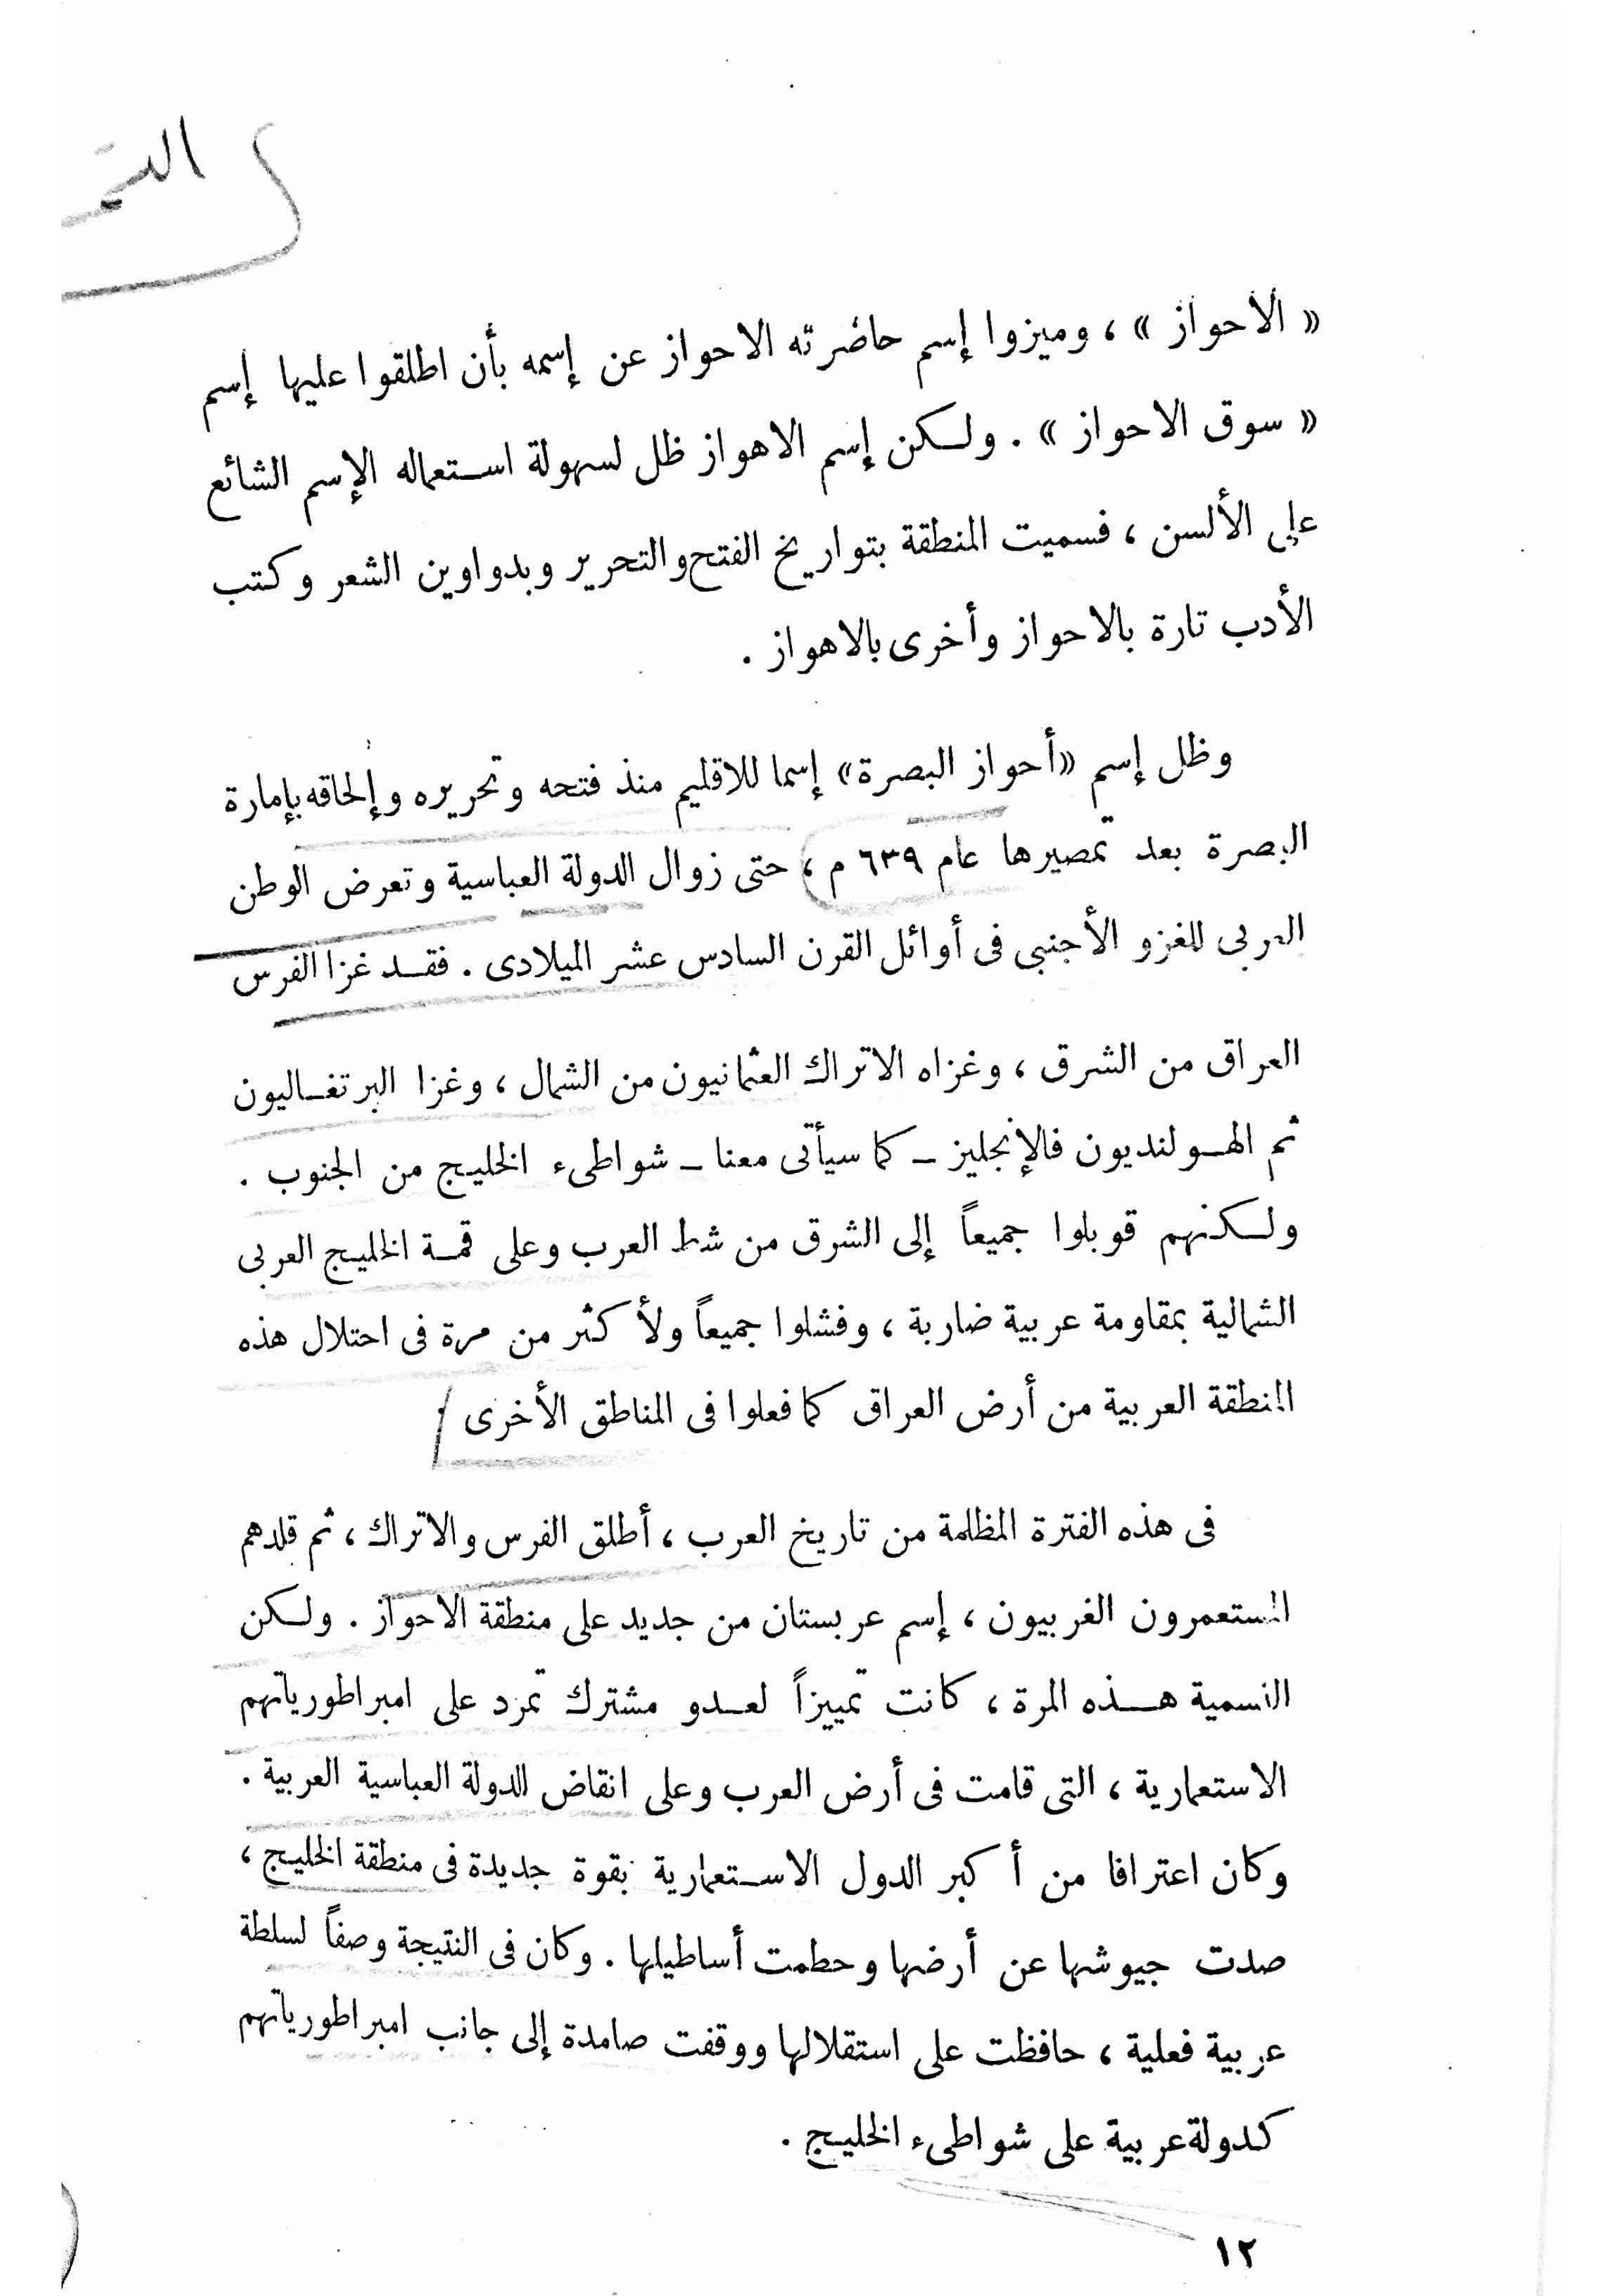 « الاحواز » ، وميزوا إسم حاضرته الاحواز عن إسمه بأن اطلقوا عليها إسم
« سوق الاحواز » . ولكن إسم الاهواز ظل لسهولة استعماله الإسم الشائع
على الألسن ، فسميت المنطقة بتواريخ الفتح والتحرير وبدواوين الشعر وكتب
الأدب تارة بالاحواز وأخرى بالاهواز .
وظل إسم «أحواز البصرة» إسما للاقليم منذ فتحه وتحريره وإلحاقه بإمارة
البصرة بعد تمصيرها عام ٦٣٩ م ، حتى زوال الدولة العباسية وتعرض الوطن
العربى للغزو الأجنبى فى أوائل القرن السادس عشر الميلادى . فقد غزا الفرس
العراق من الشرق ، وغزاه الاتراك العثمانيون من الشمال ، وغزا البرتغاليون
ثم الهولنديون فالإنجليز – كما سيأتى معنا – شواطىء الخليج من الجنوب .
ولكنهم قوبلوا جميعاً إلى الشرق من شط العرب وعلى قمة الخليج العربى
الشمالية بمقاومة عربية ضاربة ، وفشلوا جميعاً ولأكثر من مرة فى احتلال هذه
المنطقة العربية من أرض العراق كما فعلوا فى المناطق الأخرى .
فى هذه الفترة المظلمة من تاريخ العرب ، أطلق الفرس والاتراك ، ثم قلدهم
المستعمرون الغربيون ، إسم عربستان من جديد على منطقة الاحواز . ولكن
التسمية هذه المرة ، كانت تمييزاً لعدو مشترك تمرد على امبراطورياتهم
الاستعمارية ، التى قامت فى أرض العرب وعلى انقاض الدولة العباسية العربية .
وكان اعترافا من أكبر الدول الاستعمارية بقوة جديدة فى منطقة الخليج ،
صدت جيوشها عن أرضها وحطمت أساطيلها . وكان فى النتيجة وصفاً لسلطة
عربية فعلية ، حافظت على استقلالها ووقفت صامدة إلى جانب امبراطورياتهم
كدولة عربية على شواطىء الخليج .
١٢